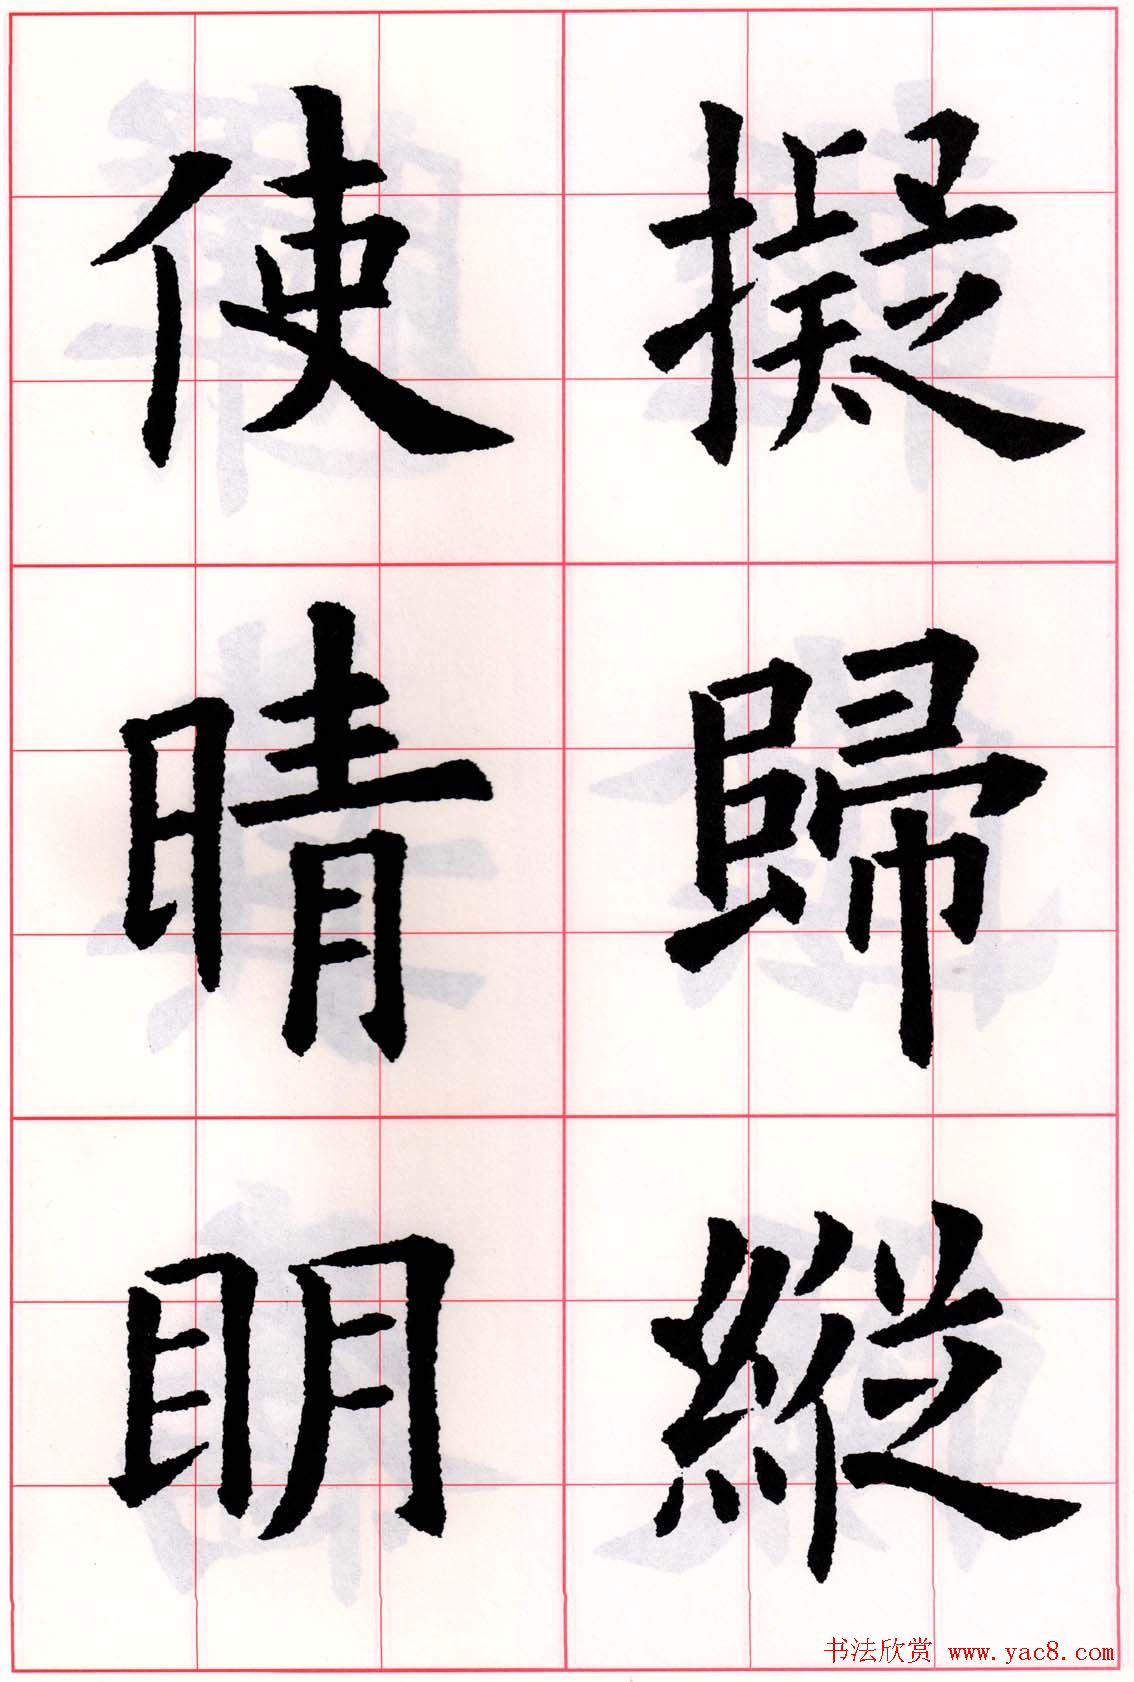 擬歸縱
使晴眀
书法欣赏 www.yac8.com